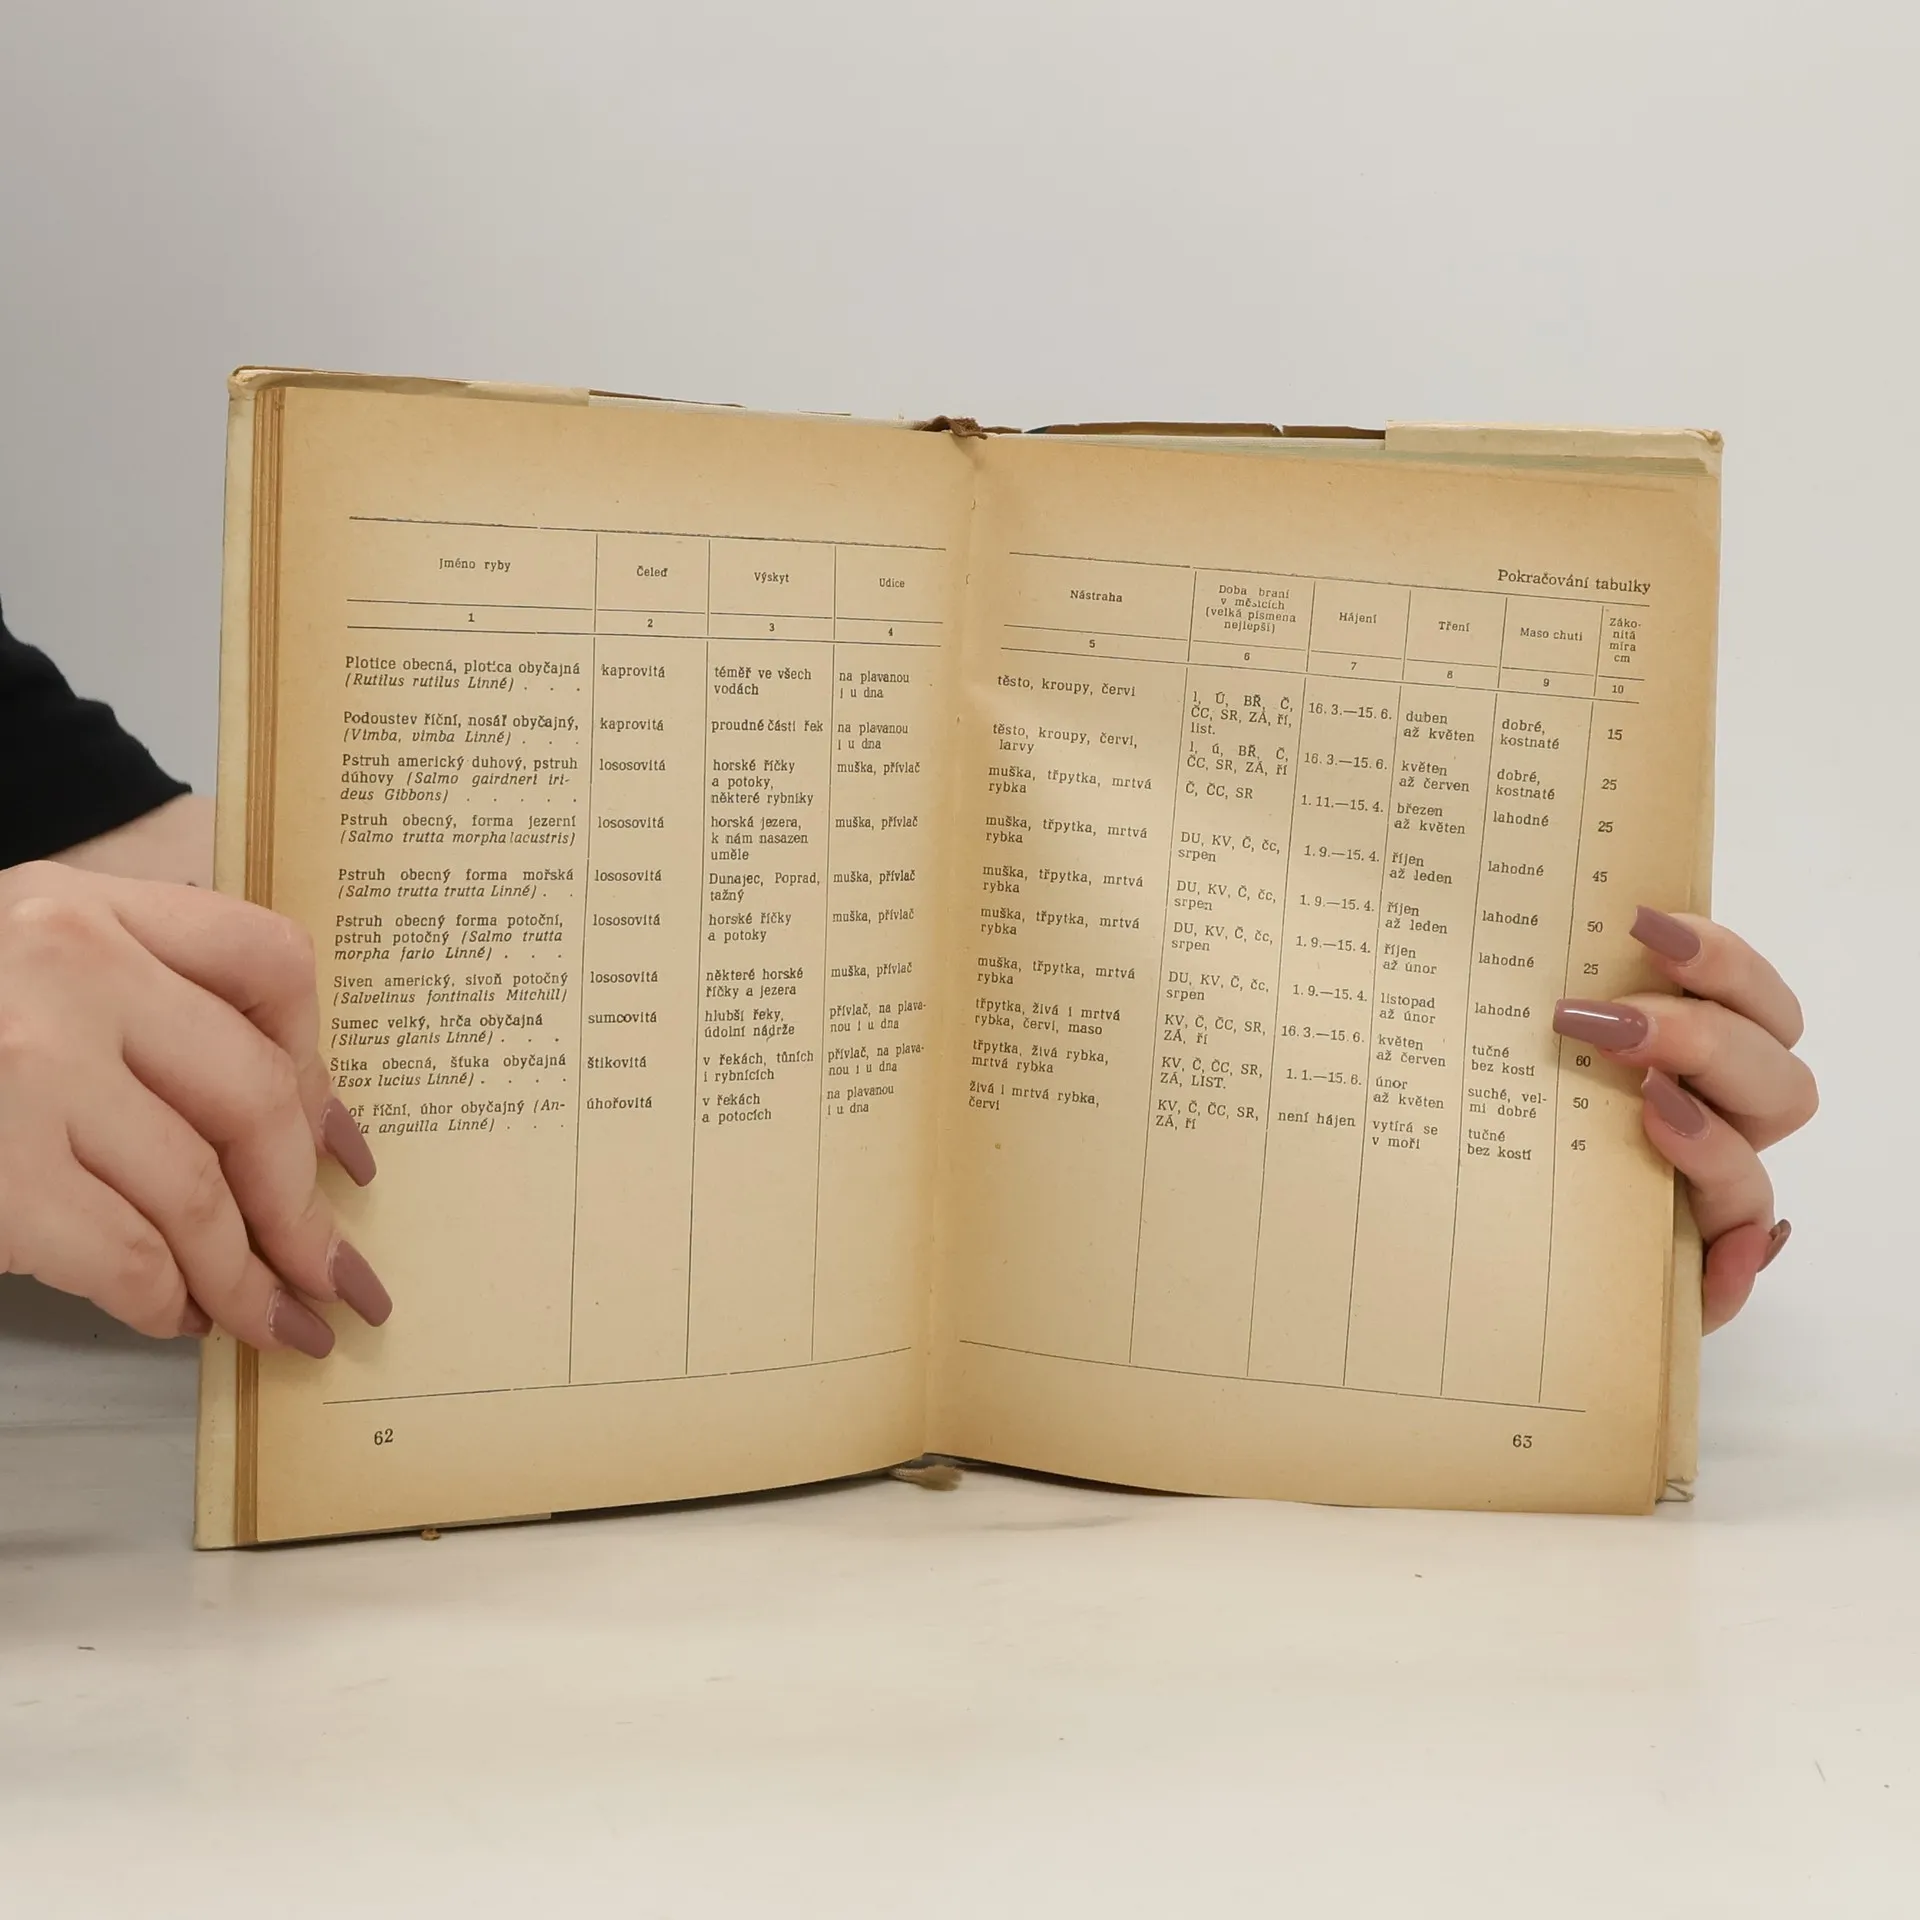 Jméno ryby
Čeleď
Výskyt
Udice
1
2
3
4
Plotice obecná, plotica obyčajná
(Rutilus rutilus Linné) . . .
kaprovitá
téměř ve všech
vodách
na plavanou
i u dna
Podoustev říční, nosáľ obyčajný,
(Vimba, vimba Linné) . . .
kaprovitá
proudné části řek
na plavanou
i u dna
Pstruh americký duhový, pstruh
dúhovy (Salmo gairdneri iri-
deus Gibbons) . . . . .
lososovitá
horské říčky
a potoky,
některé rybníky
muška, přívlač
Pstruh obecný, forma jezerní
(Salmo trutta morpha lacustris)
lososovitá
horská jezera,
k nám nasazen
uměle
muška, přívlač
Pstruh obecný forma mořská
(Salmo trutta trutta Linné) . .
lososovitá
Dunajec, Poprad,
tažný
muška, přívlač
Pstruh obecný forma potoční,
pstruh potočný (Salmo trutta
morpha fario Linné) . . .
lososovitá
horské říčky
a potoky
muška, přívlač
Siven americký, sivoň potočný
(Salvelinus fontinalis Mitchill)
lososovitá
některé horské
říčky a jezera
muška, přívlač
Sumec velký, hrča obyčajná
(Silurus glanis Linné) . . .
sumcovitá
hlubší řeky,
údolní nádrže
přívlač, na plava-
nou i u dna
Štika obecná, šťuka obyčajná
(Esox lucius Linné) . . . .
štikovitá
v řekách, tůních
i rybnících
přívlač, na plava-
nou i u dna
říční, úhor obyčajný (An-
anguilla Linné) . . .
úhořovitá
v řekách
a potocích
na plavanou
i u dna
62
Pokračování tabulky
Nástraha
Doba braní
v měsících
(velká písmena
nejlepší)
Hájení
Tření
Maso chuti
Záko-
nitá
míra
cm
5
6
7
8
9
10
těsto, kroupy, červi
l, Ú, BŘ, Č,
ČC, SR, ZÁ, ří,
list.
16. 3.—15. 6.
duben
až květen
dobré,
kostnaté
15
těsto, kroupy, červi,
larvy
l, ú, BŘ, Č,
ČC, SR, ZÁ, ří
16. 3.—15. 6.
květen
až červen
dobré,
kostnaté
25
muška, třpytka, mrtvá
rybka
Č, ČC, SR
1. 11.—15. 4.
březen
až květen
lahodné
25
muška, třpytka, mrtvá
rybka
DU, KV, Č, čc,
srpen
1. 9.—15. 4.
říjen
až leden
lahodné
45
muška, třpytka, mrtvá
rybka
DU, KV, Č, čc,
srpen
1. 9.—15. 4.
říjen
až leden
lahodné
50
muška, třpytka, mrtvá
rybka
DU, KV, Č, čc,
srpen
1. 9.—15. 4.
říjen
až únor
lahodné
25
muška, třpytka, mrtvá
rybka
DU, KV, Č, čc,
srpen
1. 9.—15. 4.
listopad
až únor
lahodné
třpytka, živá i mrtvá
rybka, červi, maso
KV, Č, ČC, SR,
ZÁ, ří
16. 3.—15. 6.
květen
až červen
tučné
bez kostí
60
třpytka, živá rybka,
mrtvá rybka
KV, Č, ČC, SR,
ZÁ, LIST.
1. 1.—15. 6.
únor
až květen
suché, vel-
mi dobré
50
živá i mrtvá rybka,
červi
KV, Č, ČC, SR,
ZÁ, ří
není hájen
vytírá se
v moři
tučné
bez kostí
45
63